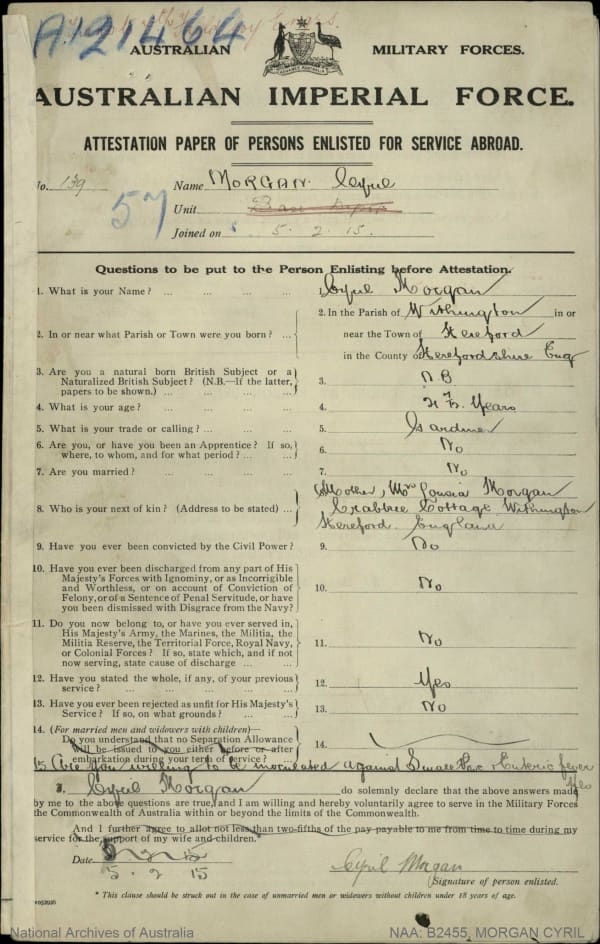 A.121464
AUSTRALIAN MILITARY FORCES.
ADVANCE AUSTRALIA
AUSTRALIAN IMPERIAL FORCE.
ATTESTATION PAPER OF PERSONS ENLISTED FOR SERVICE ABROAD.
No. 139 Name MORGAN Cyril
57
Unit Base Depot
Joined on 5. 2. 15.
Questions to be put to the Person Enlisting before Attestation.
1. What is your Name? ... ... ... 1. Cyril Morgan
2. In or near what Parish or Town were you born? ... 2. In the Parish of Withington in or
near the Town of Hereford
in the County of Herefordshire Eng
3. Are you a natural born British Subject or a
Naturalized British Subject? (N.B.—If the latter,
papers to be shown.) ... ... ... 3. N.B
4. What is your age? ... ... ... 4. Years
5. What is your trade or calling? ... ... 5. Gardner
6. Are you, or have you been an Apprentice? If so,
where, to whom, and for what period? ... ... 6. No
7. Are you married? ... ... ... 7. No
8. Who is your next of kin? (Address to be stated) ... 8. Mother, Mrs Morgan
Crabtree Cottage Withington
Hereford England
9. Have you ever been convicted by the Civil Power? 9. No
10. Have you ever been discharged from any part of His
Majesty's Forces with Ignominy, or as Incorrigible
and Worthless, or on account of Conviction of
Felony, or of a Sentence of Penal Servitude, or have
you been dismissed with Disgrace from the Navy? 10. No
11. Do you now belong to, or have you ever served in,
His Majesty's Army, the Marines, the Militia, the
Militia Reserve, the Territorial Force, Royal Navy,
or Colonial Forces? If so, state which, and if not
now serving, state cause of discharge ... ... 11. No
12. Have you stated the whole, if any, of your previous
service? ... ... ... ... 12. Yes
13. Have you ever been rejected as unfit for His Majesty's
Service? If so, on what grounds? ... ... 13. No
14. (For married men and widowers with children)—
Do you understand that no Separation Allowance
will be issued to you either before or after
embarkation during your term of service? ... 14.
15 Are you willing to be inoculated against Small Pox & Enteric fever
Yes
I, Cyril Morgan do solemnly declare that the above answers made
by me to the above questions are true, and I am willing and hereby voluntarily agree to serve in the Military Forces
of the Commonwealth of Australia within or beyond the limits of the Commonwealth.
And I further agree to allot not less than two-fifths of the pay payable to me from time to time during my
service for the support of my wife and children.*
Date 5 2 15
5 . 2 15
Cyril Morgan
Signature of person enlisted.
* This clause should be struck out in the case of unmarried men or widowers without children under 18 years of age.
National Archives of Australia NAA: B2455, MORGAN CYRIL